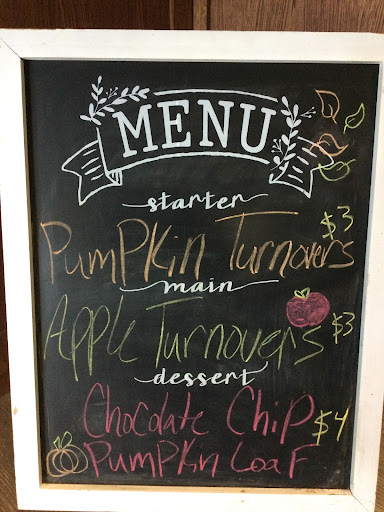 MENU
starter
$3
PumPkin Turnovers
main
Apple Turnovers $3
dessert
Chocolate ChiP $4
PumPkin LoaF